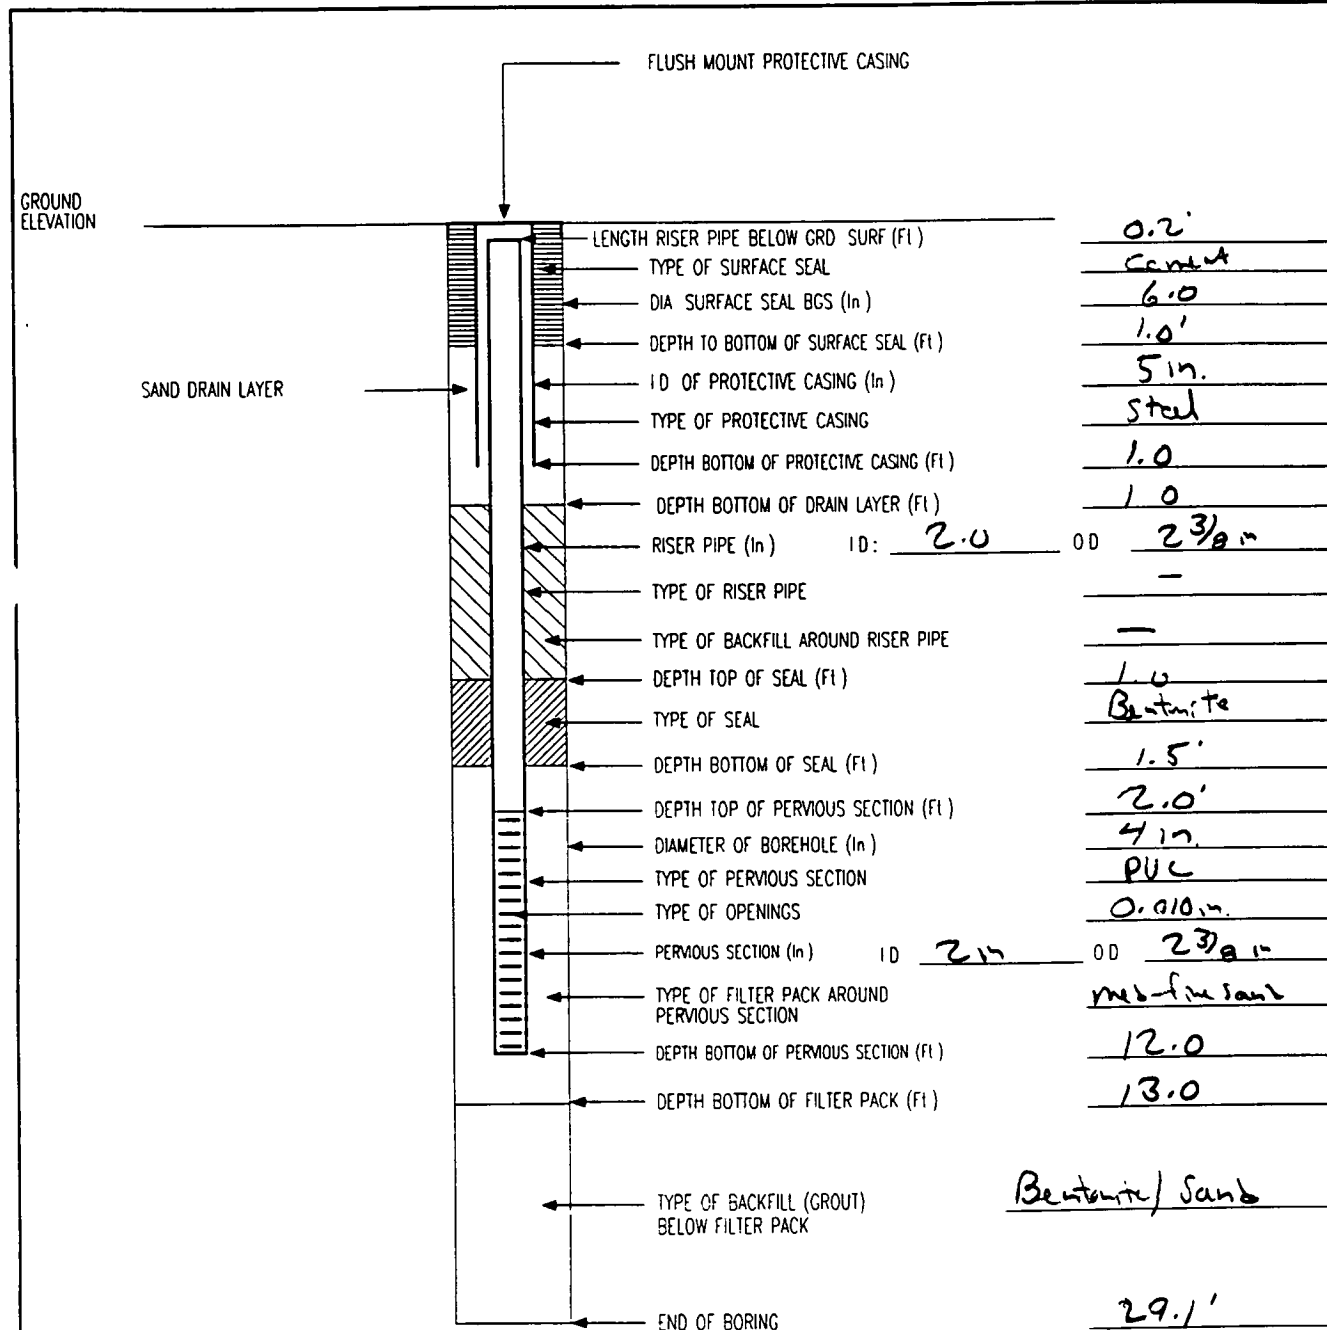 FLUSH MOUNT PROTECTIVE CASING
GROUND
ELEVATION
LENGTH RISER PIPE BELOW GRD SURF (Ft) 0.2'
TYPE OF SURFACE SEAL Cement
DIA SURFACE SEAL BGS (In) 6.0
DEPTH TO BOTTOM OF SURFACE SEAL (Ft) 1.0'
SAND DRAIN LAYER
ID OF PROTECTIVE CASING (In) 5 in.
TYPE OF PROTECTIVE CASING Steel
DEPTH BOTTOM OF PROTECTIVE CASING (Ft) 1.0
DEPTH BOTTOM OF DRAIN LAYER (Ft) 1 0
RISER PIPE (In) ID: 2.0 OD 2 3/8 in
TYPE OF RISER PIPE —
TYPE OF BACKFILL AROUND RISER PIPE —
DEPTH TOP OF SEAL (Ft) 1.0
TYPE OF SEAL Bentonite
DEPTH BOTTOM OF SEAL (Ft) 1.5'
DEPTH TOP OF PERVIOUS SECTION (Ft) 2.0'
DIAMETER OF BOREHOLE (In) 4 in.
TYPE OF PERVIOUS SECTION PVC
TYPE OF OPENINGS 0.010 in.
PERVIOUS SECTION (In) ID 2 in OD 2 3/8 in
TYPE OF FILTER PACK AROUND med-fine sand
PERVIOUS SECTION
DEPTH BOTTOM OF PERVIOUS SECTION (Ft) 12.0
DEPTH BOTTOM OF FILTER PACK (Ft) 13.0
TYPE OF BACKFILL (GROUT) Bentonite/Sand
BELOW FILTER PACK
END OF BORING 29.1'